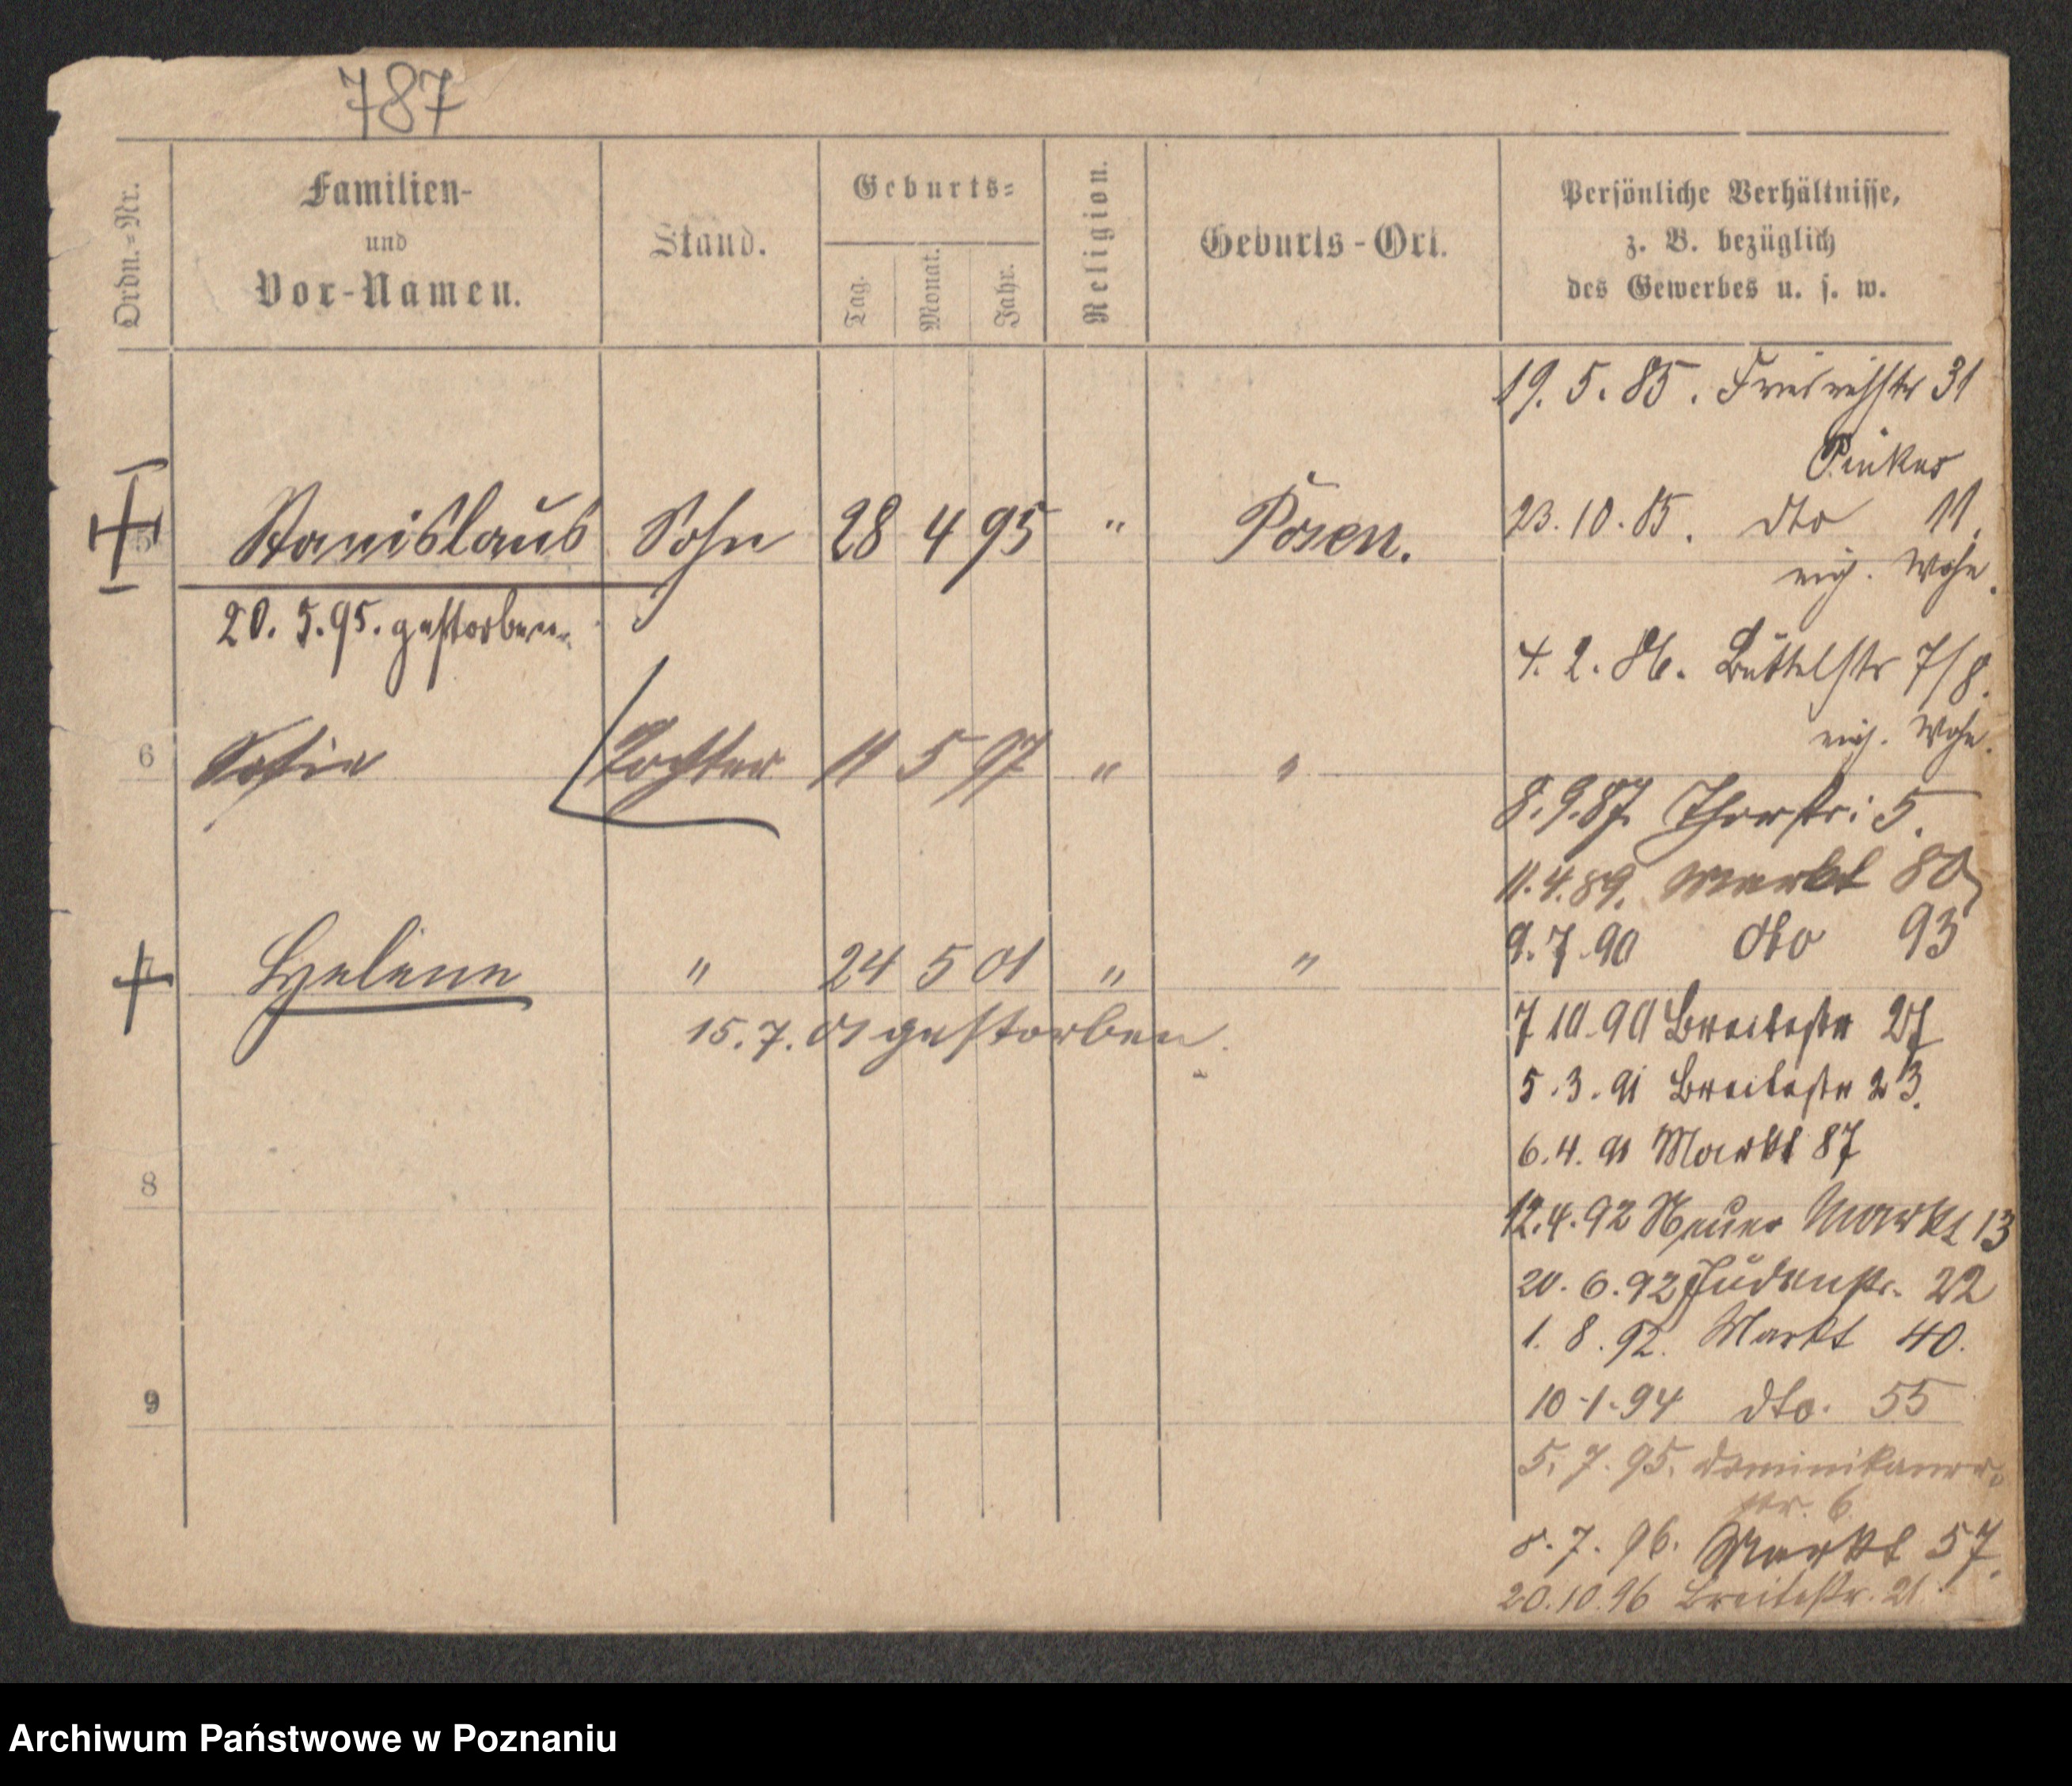 787
Ordn.=Nr.
Familien-
und
Vor-Namen.
Stand.
Geburts=
Tag.
Monat.
Jahr.
Religion.
Geburts-Ort.
Persönliche Verhältnisse,
z. B. bezüglich
des Gewerbes u. s. w.
19. 5. 85. Friedrichstr 31
Pinkus
5 Stanislaus Sohn 28 4 95 " Posen.
20. 5. 95. gestorben.
23. 10. 85. dto 11.
eig. Wohn.
4. 2. 86. Büttelstr 7/8.
eig. Wohn.
6 Sofie Tochter 11 5 97 " "
8. 9. 87. Thorstr: 5.
11. 4. 89. Markt 80
9. 7. 90 dto 93
7 Helene " 24 5 01 " "
15. 7. 01 gestorben.
7 10. 90 Breitestr 27
5. 3. 91 Breitestr 23.
6. 4. 91 Markt 87
8
12. 4. 92 Neuer Markt 13
20. 6. 92 Judenstr. 22
1. 8. 92. Markt 40.
9
10-1-94 dto. 55
5. 7. 95. Dominikaner-
str. 6
8. 7. 96. Markt 57.
20. 10. 96 Breitestr. 21.
Archiwum Państwowe w Poznaniu